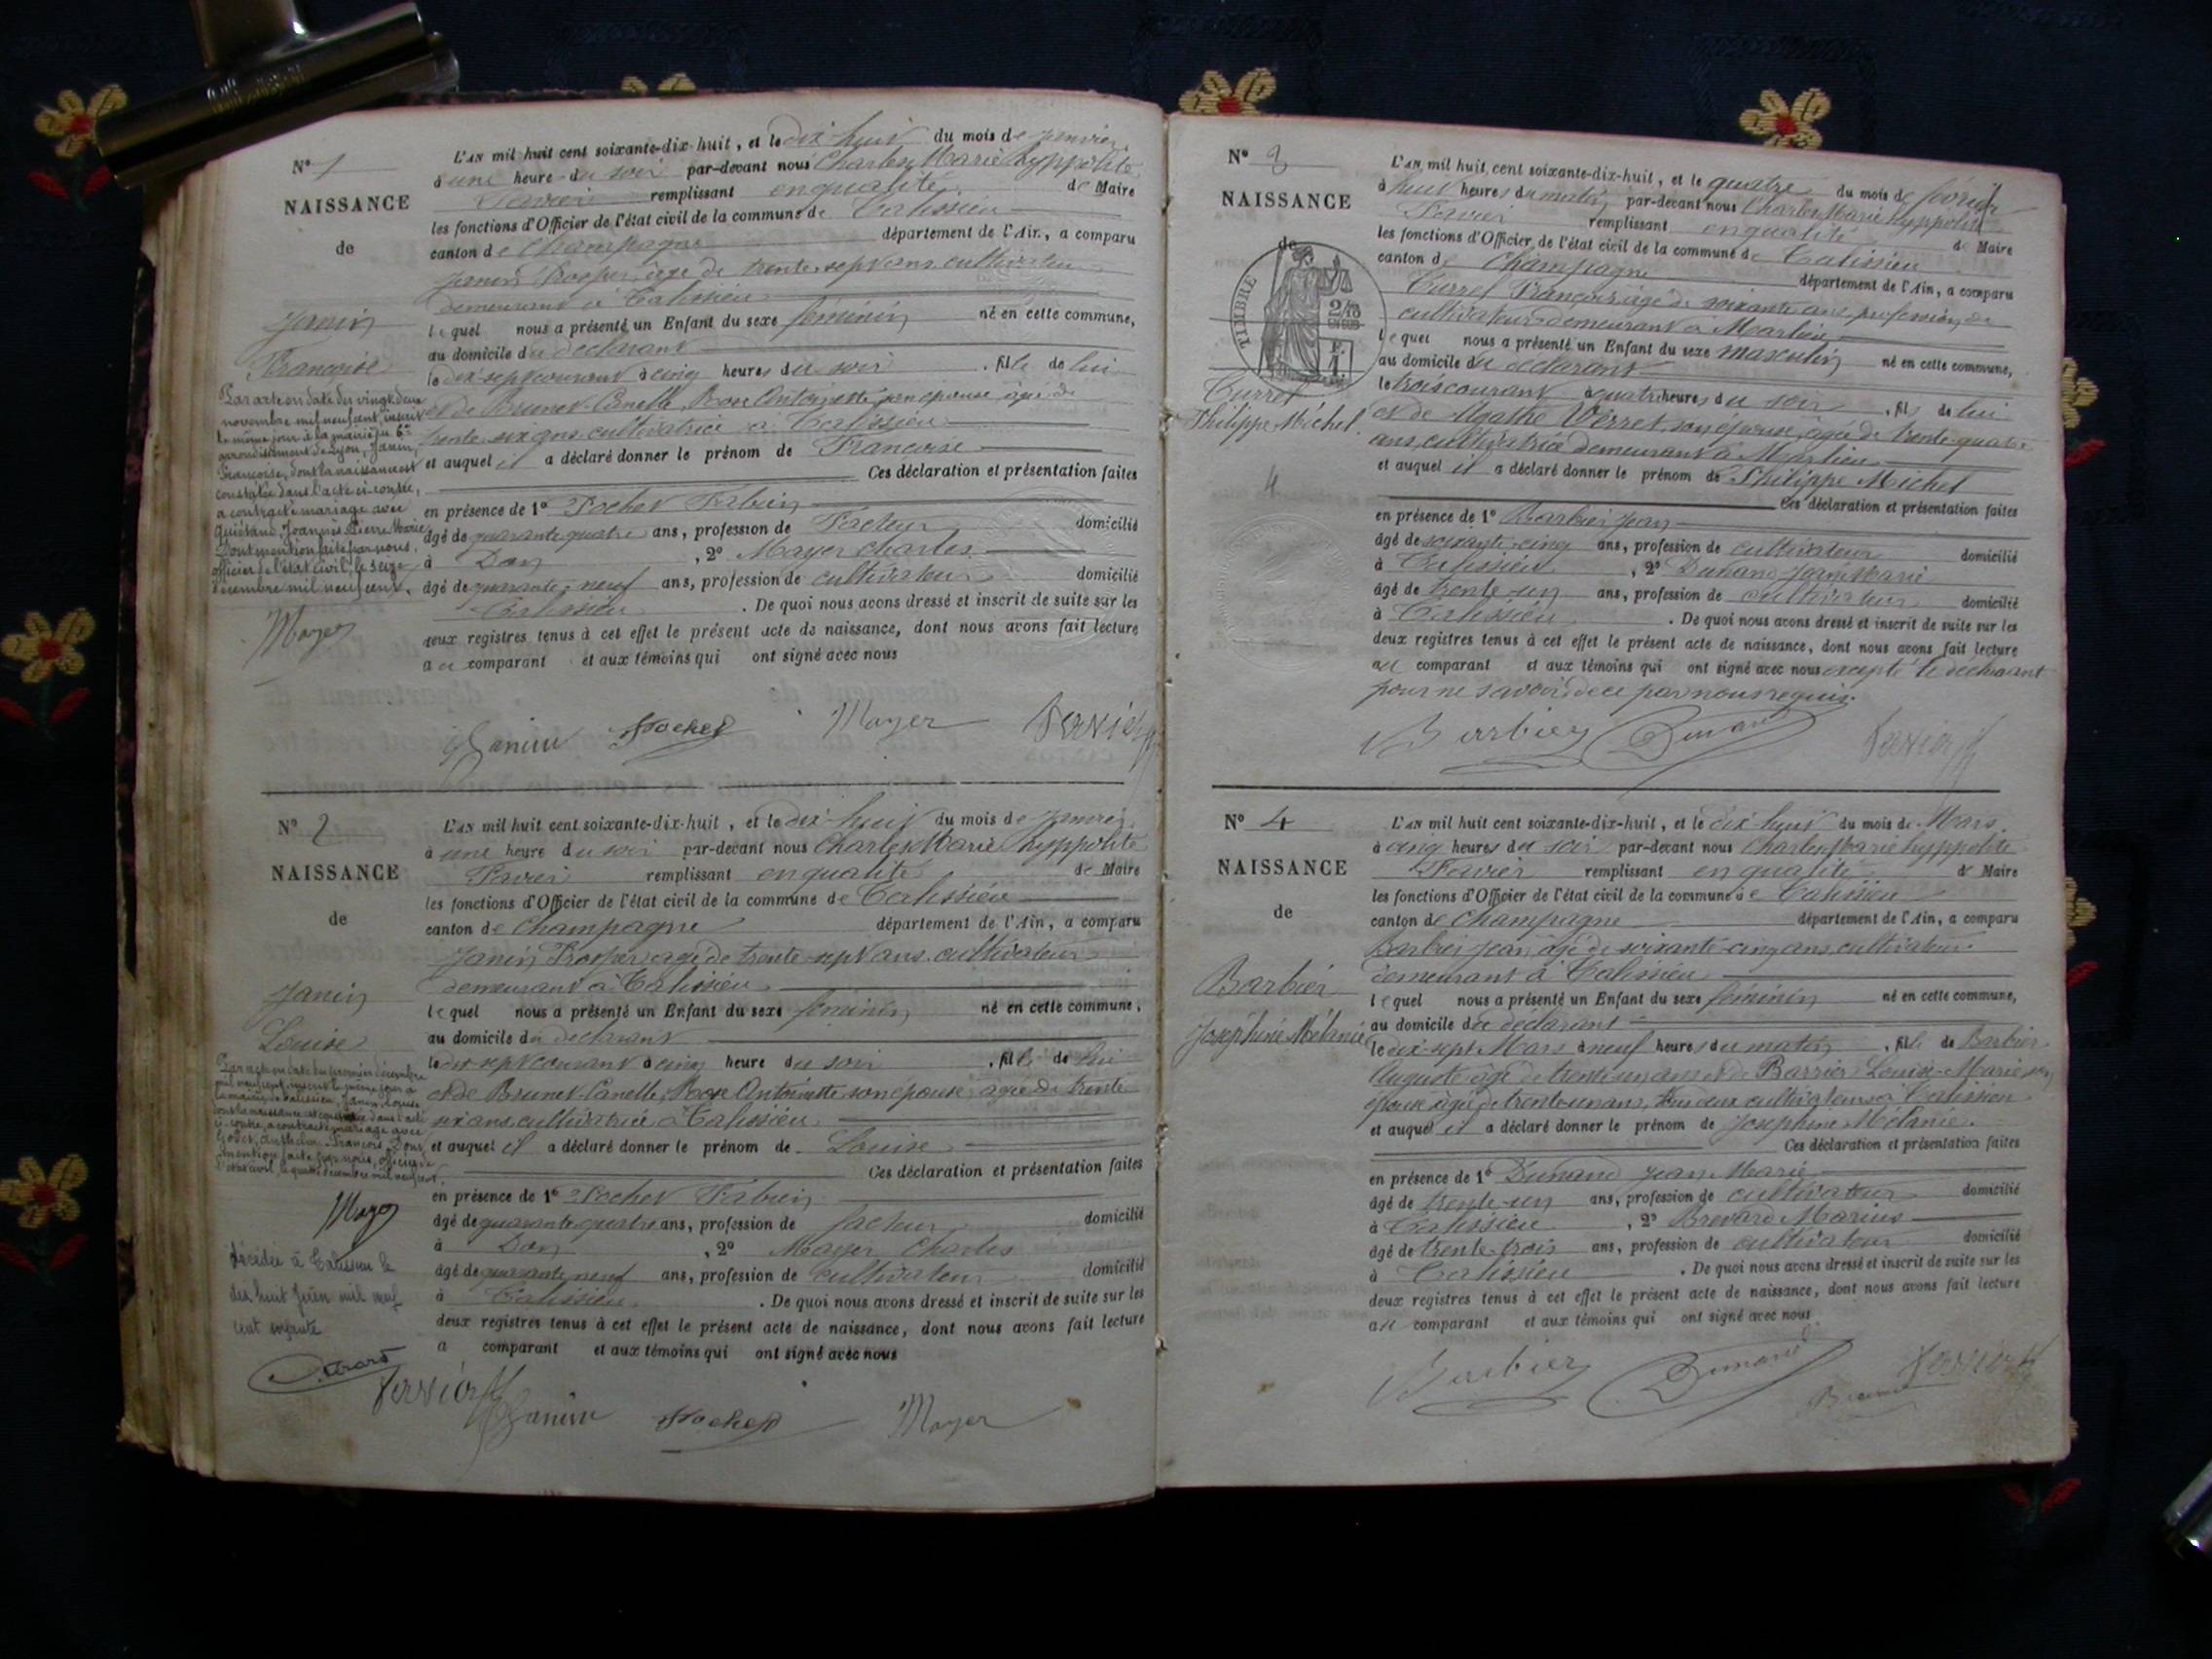 N° 1
NAISSANCE
de
Janin
Françoise
Par acte en date du vingt deux
novembre mil neuf cent, inscrit
le même jour à la mairie du 6me
arrondissement de Lyon, Janin,
Françoise, dont la naissance est
constatée dans l'acte ci-contre,
a contracté mariage avec
Joannès Pierre Marie
Dont mention faite par nous,
officier de l'état civil, le seize
décembre mil neuf cent.
Mayer
L'AN mil huit cent soixante-dix-huit, et le dix huit du mois de janvier
à une heure du soir par-devant nous Charles Marie hyppolite
remplissant en qualité de Maire
les fonctions d'Officier de l'état civil de la commune de Talissieu
canton de Champagne département de l'Ain, a comparu
Janin Prosper âgé de trente sept ans cultivateur
demeurant à Talissieu
lequel nous a présenté un Enfant du sexe féminin né en cette commune,
au domicile du déclarant
le dix sept courant à cinq heures du soir, fille de lui
et de Brunet-Canelle, Rose Antoinette son épouse, âgée de
trente six ans cultivatrice à Talissieu
et auquel il a déclaré donner le prénom de Françoise
Ces déclaration et présentation faites
en présence de 1° Pochet Fabien
âgé de quarante quatre ans, profession de Facteur domicilié
à Don, 2° Mayer Charles
âgé de quarante-neuf ans, profession de cultivateur domicilié
Talissieu. De quoi nous avons dressé et inscrit de suite sur les
deux registres tenus à cet effet le présent acte de naissance, dont nous avons fait lecture
au comparant et aux témoins qui ont signé avec nous
Janin Pochet Mayer
N° 2
NAISSANCE
de
Janin
Louise
Par acte en date du premier décembre
mil neuf cent, inscrit le même jour à
la mairie de Talissieu, Janin, Louise
dont la naissance est constatée dans l'acte
ci-contre, a contracté mariage avec
François. Dont
mention faite par nous, officier de
l'état civil, le quatre décembre mil neuf cent.
Mayer
Décédée à Talissieu le
dix huit Juin mil neuf
cent soixante
L'AN mil huit cent soixante-dix-huit, et le dix-huit du mois de janvier
à une heure du soir par-devant nous Charles Marie hyppolite
remplissant en qualité de Maire
les fonctions d'Officier de l'état civil de la commune de Talissieu
canton de Champagne département de l'Ain, a comparu
Janin Prosper âgé de trente-sept ans cultivateur
demeurant à Talissieu
lequel nous a présenté un Enfant du sexe féminin né en cette commune,
au domicile du déclarant
le dix sept courant à cinq heure du soir, fille de lui
et de Brunet-Canelle, Rose Antoinette son épouse âgée de trente
six ans cultivatrice à Talissieu
et auquel il a déclaré donner le prénom de Louise
Ces déclaration et présentation faites
en présence de 1° Pochet Fabien
âgé de quarante quatre ans, profession de facteur domicilié
à Don, 2° Mayer Charles
âgé de quarante neuf ans, profession de cultivateur domicilié
à Talissieu. De quoi nous avons dressé et inscrit de suite sur les
deux registres tenus à cet effet le présent acte de naissance, dont nous avons fait lecture
a comparant et aux témoins qui ont signé avec nous
Janin Pochet Mayer
N° 3
NAISSANCE
de
TIMBRE
Philippe Michel
4
L'AN mil huit cent soixante-dix-huit, et le quatre du mois de février
à huit heures du matin par-devant nous Charles Marie hyppolite
remplissant en qualité de Maire
les fonctions d'Officier de l'état civil de la commune de Talissieu
canton de Champagne département de l'Ain, a comparu
François âgé de soixante ans, profession de
cultivateur demeurant à Marlieu
lequel nous a présenté un Enfant du sexe masculin né en cette commune,
au domicile du déclarant
le trois courant à quatre heures du soir, fils de lui
et de Agathe Verret, son épouse, âgée de trente-quatre
ans, cultivatrice demeurant à Marlieu
et auquel il a déclaré donner le prénom de Philippe Michel
Ces déclaration et présentation faites
en présence de 1° Barbier Jean
âgé de soixante-cinq ans, profession de cultivateur domicilié
à Talissieu, 2° Dunand Jean Marie
âgé de trente-un ans, profession de cultivateur domicilié
à Talissieu. De quoi nous avons dressé et inscrit de suite sur les
deux registres tenus à cet effet le présent acte de naissance, dont nous avons fait lecture
au comparant et aux témoins qui ont signé avec nous excepté le déclarant
pour ne savoir de ce par nous requis.
Barbier Dunand
N° 4
NAISSANCE
de
Barbier
Joséphine Mélanie
L'AN mil huit cent soixante-dix-huit, et le dix huit du mois de Mars
à cinq heures du soir par-devant nous Charles Marie hyppolite
remplissant en qualité de Maire
les fonctions d'Officier de l'état civil de la commune de Talissieu
canton de Champagne département de l'Ain, a comparu
Barbier Jean âgé de soixante-cinq ans, cultivateur
demeurant à Talissieu
lequel nous a présenté un Enfant du sexe féminin né en cette commune,
au domicile du déclarant
le dix-sept Mars à neuf heures du matin, fille de Barbier
Auguste âgé de trente un ans et de Barrier Louise-Marie son
épouse âgée de trente-un ans, tous deux cultivateurs à Talissieu
et auquel il a déclaré donner le prénom de Joséphine Mélanie.
Ces déclaration et présentation faites
en présence de 1° Dunand Jean Marie
âgé de trente-un ans, profession de cultivateur domicilié
à Talissieu, 2° Marius
âgé de trente-trois ans, profession de cultivateur domicilié
à Talissieu. De quoi nous avons dressé et inscrit de suite sur les
deux registres tenus à cet effet le présent acte de naissance, dont nous avons fait lecture
au comparant et aux témoins qui ont signé avec nous
Barbier Dunand